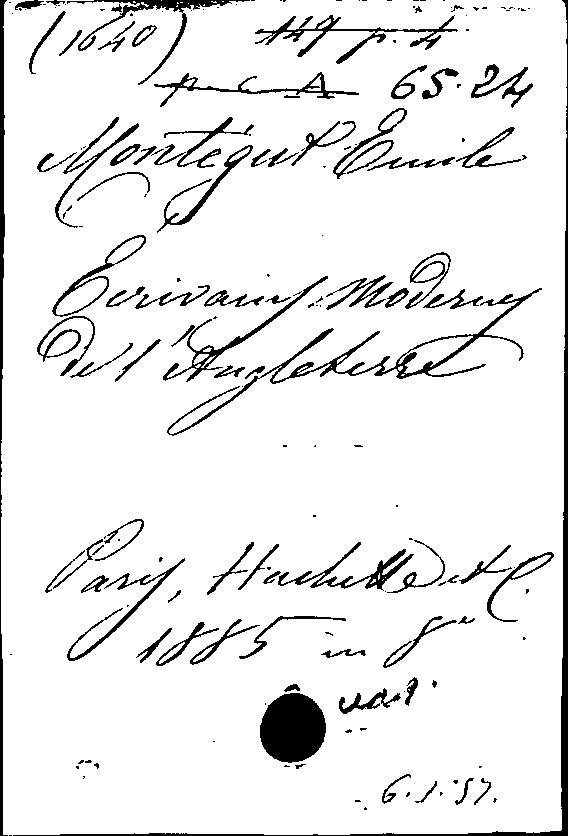 (1640) 149 p. 4
p. c A 65.24
Montégut Emile
Ecrivains Modernes
de l'Angleterre
Paris, Hachette et C.
1885 in 8°
6.3.57.